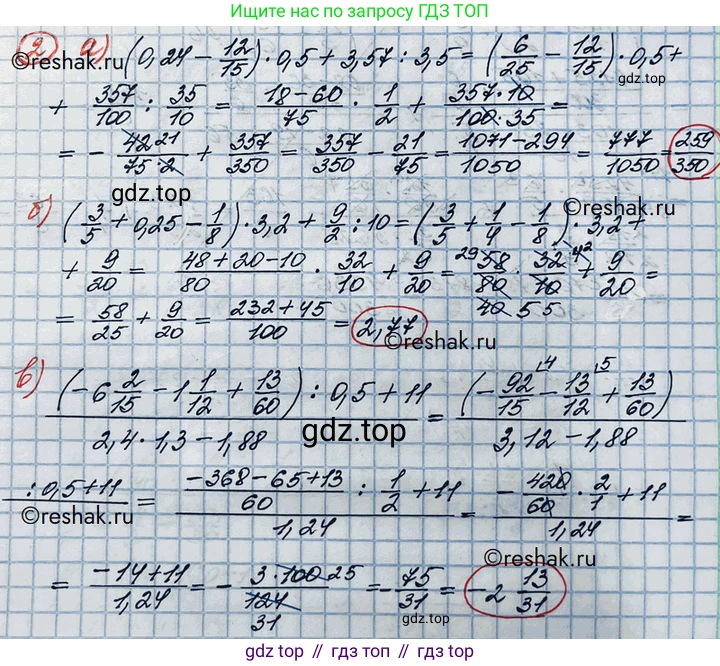 Ищите нас по запросу ГДЗ ТОП
2) а) (0,24 − 12/15) · 0,5 + 3,57 : 3,5 = (6/25 − 12/15) · 0,5 +
gdz.top
+ 357/100 : 35/10 = (18−60)/75 · 1/2 + (357·10)/(100·35) =
= − (42 21)/(75·2) + 357/350 = 357/350 − 21/75 = (1071−294)/1050 = 777/1050 = 259/350
gdz.top
©reshak.ru
б) (3/5 + 0,25 − 1/8) · 3,2 + 9/2 : 10 = (3/5 + 1/4 − 1/8) · 3,2 +
©reshak.ru
+ 9/20 = (48+20−10)/80 · 32/10 + 9/20 = (29 58)/(80 40) · (32 4 2)/(10 5 5) + 9/20 =
= 58/25 + 9/20 = (232+45)/100 = 2,77
©reshak.ru
в) ((−6 2/15 − 1 1/12 + 13/60) : 0,5 + 11)/(2,4·1,3−1,88) = (−92/15 4 − 13/12 5 + 13/60)/(3,12−1,88)
gdz.top
: 0,5+11 = ((−368−65+13)/60 : 1/2 + 11)/1,24 = (−420/60 · 2/1 + 11)/1,24 =
©reshak.ru
©reshak.ru
= (−14+11)/1,24 = − (3·100 25)/(124 31) = −75/31 = −2 13/31
gdz.top // гдз.топ // gdz.top // гдз.топ // gdz.top